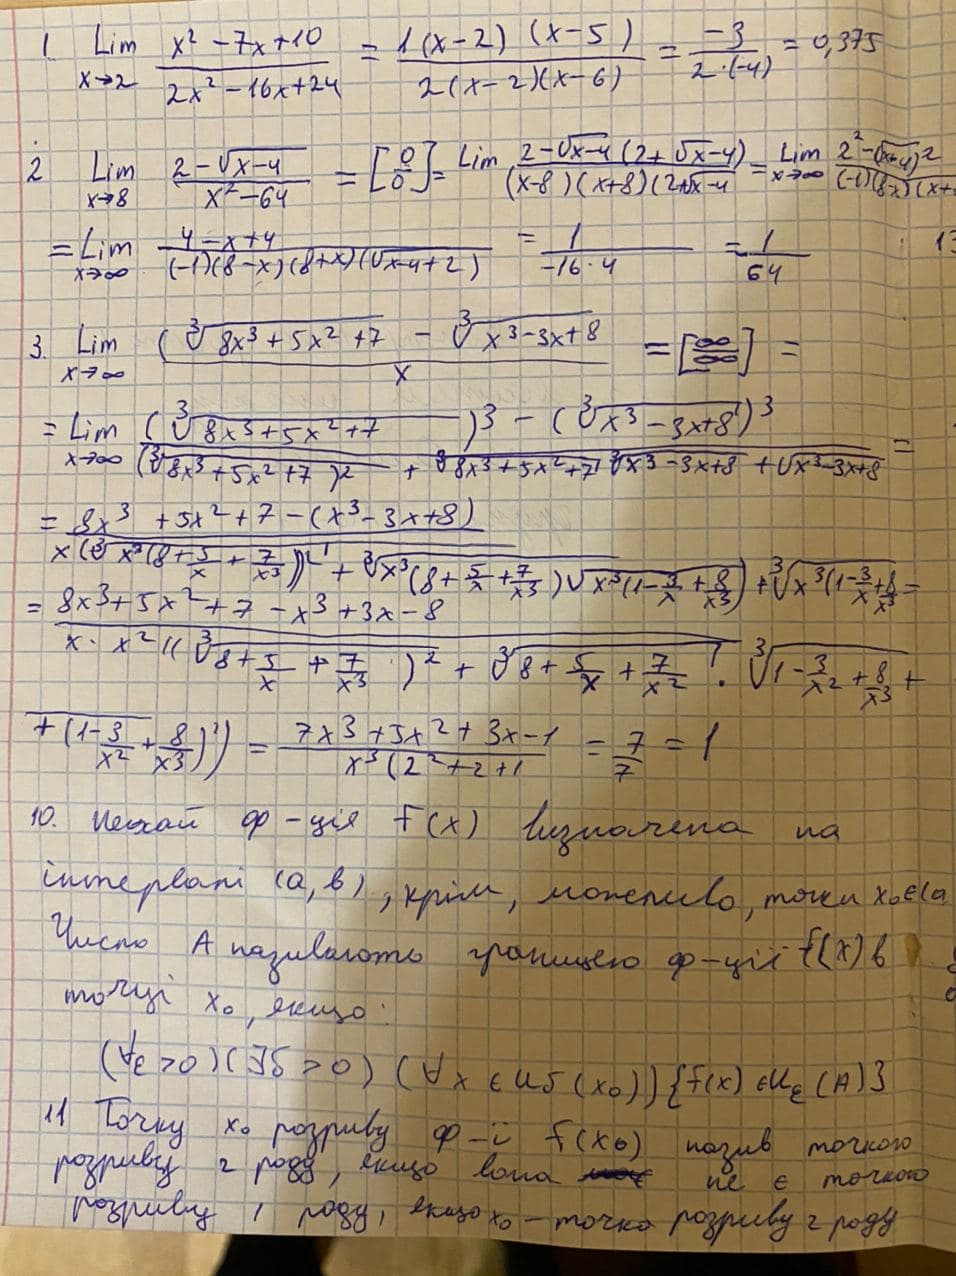 1. Lim x→2 (x² - 7x + 10)/(2x² - 16x + 24) = 1(x-2)(x-5)/2(x-2)(x-6) = -3/2·(-4) = 0,375
2 Lim x→8 (2-√x-4)/(x²-64) = [0/0] = Lim 2-√x-4 (2+√x-4)/(x-8)(x+8)(2+√x-4 = Lim x→∞ 2²-(√x+4)²/(-1)(8x)(x+
= Lim x→∞ 4-x+4/(-1)(8-x)(8+x)(√x-4+2) = 1/-16·4 = 1/64
13
3. Lim x→∞ (∛8x³+5x²+7 - ∛x³-3x+8/x = [∞/∞] =
= Lim x→∞ (∛8x³+5x²+7)³ - (∛x³-3x+8)³/(∛8x³+5x²+7)² + ∛8x³+5x²+7 ∛x³-3x+8 + √x³-3x+8 =
= 8x³+5x²+7-(x³-3x+8)/x(∛x³(8+5/x+7/x³))² + ∛x³(8+5/x+7/x³)√x³(1-3/x+8/x³) + ∛x³(1-3/x+8/x³ =
= 8x³+5x²+7-x³+3x-8/x·x²((∛8+5/x+7/x³)² + ∛8+5/x+7/x² · ∛1-3/x²+8/x³ +
+(1-3/x²+8/x³)²) = 7x³+5x²+3x-1/x³(2²+2+1 = 7/7 = 1
10. Нехай ф-ція f(x) визначена на
інтервалі (a,b), крім, можливо, точки x₀∈(a
Число A називають границею ф-ції f(x) в
точці x₀, якщо:
(∀ε>0)(∃δ>0)(∀x∈Uδ(x₀)){f(x)∈Uε(A)}
11 Точку x₀ розриву ф-ї f(x₀) назив точкою
розриву 2 роду, якщо вона не є точкою
розриву 1 роду, якщо x₀ - точка розриву 2 роду